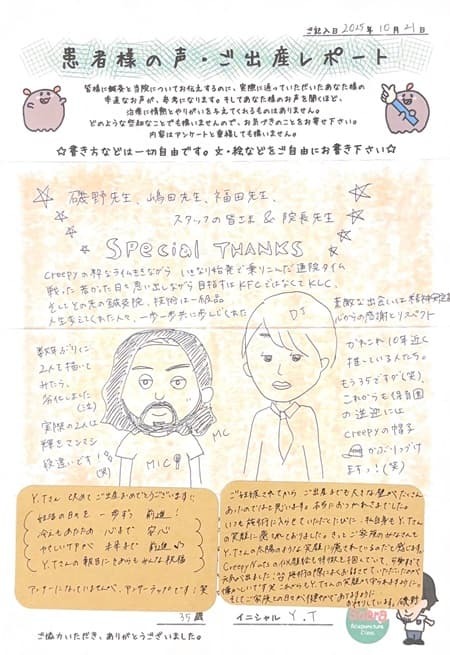 ご記入日 2025年 10月 21日
患者様の声・ご出産レポート
皆様に鍼灸と当院についてお伝えするのに、実際に通っていただいたあなた様の
率直なお声が、参考になります。そしてあなた様のお声を聞くほど、
治療に情熱とやりがいを与えてくれるものはありません。
どのような些細なことでも構いませんので、お気づきのことをお書き下さい。
内容はアンケートと重複しても構いません。
☆書き方などは一切自由です。文・絵などをご自由にお書き下さい☆
磯野先生、嶋田先生、福田先生、
スタッフの皆さま & 院長先生
SPecial THANKS
Creepyの粋なライムをききながら いきなり始発で乗りこんだ通院タイム
戦った若かった日々思い出しながら 目指すはKFCではなくてKLC。
そしてその先の鍼灸院、技術は一級品
素敵な出会いには
人生を支えてくれた人々、一歩一歩共に歩んでくれた
心からの感謝とリスペクト
数年ぶりに
2人を描いて
みたら、
劣化しました
(泣)
実際の2人は
輝きでマンミン
段違いです!!
(笑)
MC
MIC
DJ
かれこれ10年近く
推している人たち。
もう35ですが(笑)、
これからも保育園
の送迎には
Creepyの帽子
かぶりつづけ
ますっ!(笑)
Y.Tさん 改めてご出産おめでとうございます!
妊活の日々を 一歩ずつ 前進!
冷えもあたため 心まで 安心
やさしいケアが 未来まで 前進
Y.Tさんの報告に もちろんみんな祝福
アンサーになっていませんが、アンサーラップです!笑
ご妊娠されてから ご出産までも大きな壁がたくさん
あったのではと思います。本当におつかれさまでした。
いつも施術に入らせていただくたびに、私自身もY.Tさん
の笑顔に癒されておりました。きっとご家族のみなさんも
Y.Tさんの太陽のような笑顔に癒されているのだと感じます。
Y.Tさんの笑顔が守られますように。
そしてご家族との日々が健やかでありますように
お祈りしています。磯野
35歳
イニシャル Y.T
ご協力いただき、ありがとうございました。
Acupuncture
Clinic